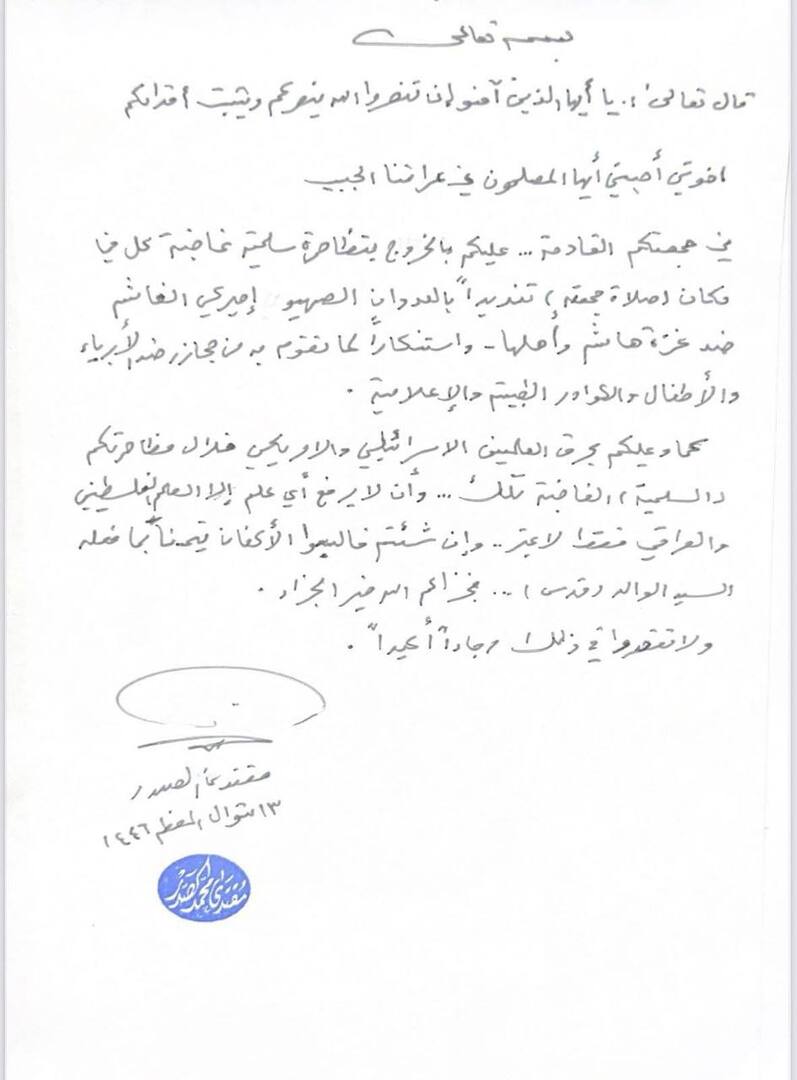 بسمه تعالى
قال تعالى: يا أيها الذين آمنوا إن تنصروا الله ينصركم ويثبت أقدامكم
اخوتي أحبتي أيها المصلحون في عراقنا الحبيب
في جمعتكم القادمة... عليكم بالخروج بتظاهرة سلمية غاضبة كل في
مكان (صلاة جمعته) تنديداً بالعدوان الصهيو إمريكي الغاشم
ضد غزة هاشم وأهلها.. واستنكاراً لما تقوم به من مجازر ضد الأبرياء
والأطفال والكوادر الطبية والإعلامية.
كما وعليكم بحرق العلمين الاسرائيلي والامريكي خلال مظاهرتكم
(السلمية) الغاضبة تلك... وأن لا يرفع أي علم إلا العلم الفلسطيني
والعراقي فقط لا غير.. وإن شئتم فالبسوا الأكفان تيمناً بما فعله
السيد الوالد (قدس)... فجزاكم الله خير الجزاء.
ولا تقصروا في ذلك رجاءاً أكيداً.
مقتدى الصدر
١٣ شوال المعظم ١٤٤٦
مقتدى محمد الصدر